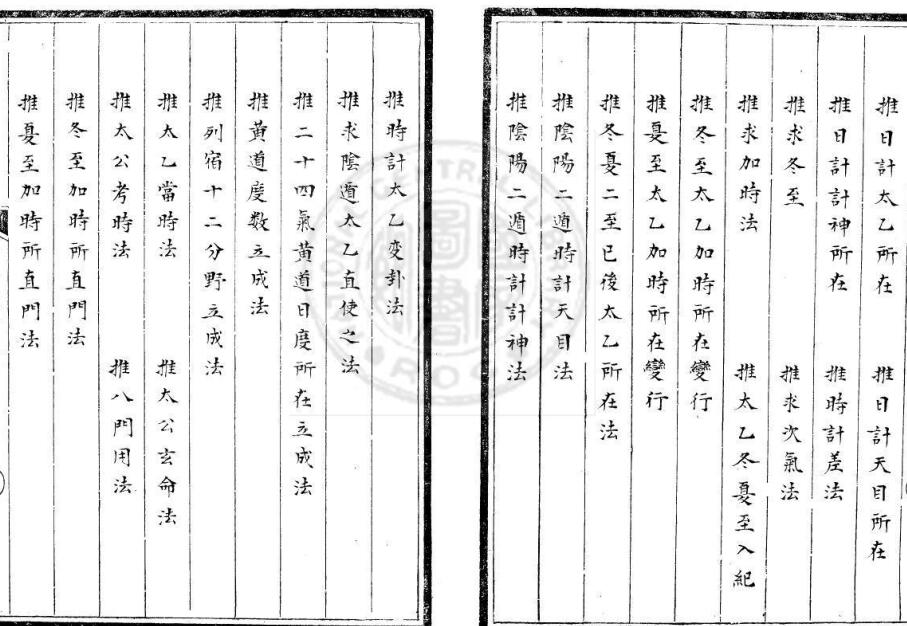 推日計太乙所在　推日計天目所在
推日計計神所在　推時計差法
推求冬至　推求次氣法
推求加時法　推太乙冬夏至入紀
推冬至太乙加時所在變行
推夏至太乙加時所在變行
推冬夏二至已後太乙所在法
推陰陽二遁時計天目法
推陰陽二遁時計計神法
推時計太乙变卦法
推求陰遁太乙直使之法
推二十四氣黃道日度所在立成法
推黃道度数立成法
推列宿十二分野立成法
推太乙當時法　推太公玄命法
推太公考時法　推八門用法
推冬至加時所直門法
推夏至加時所直門法